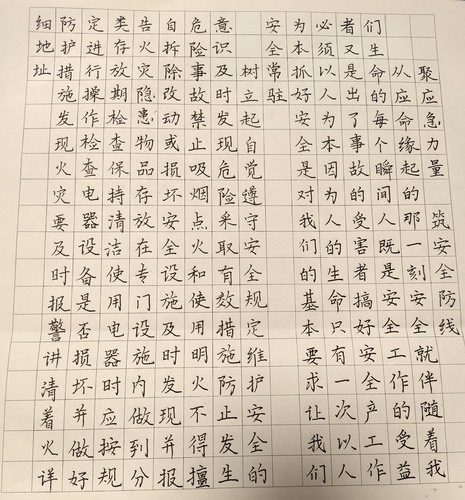 聚应急力量 筑安全防线
从应命缘起的那一刻安全就伴随着我
们生命的每个瞬间人既是安全工作的受益
者又是出了事故的受害者搞好安全产工作
必须以人为本因为人的生命只有一次以人
为本抓好安全是对我们的基本要求让我们
安全常驻
树立起自觉遵守安全规定维护安全的
意识及时发现危险采取有效措施防止发生
危险事故禁止吸烟点火和使用明火不得擅
自拆除改动或损坏安全设施及时发现并报
告火灾隐患物品存放在专门设施内做到分
类存放期检查保持清洁使用电器时应按规
定进行操作检查电器设备是否损坏并做好
防护措施发现火灾要及时报警讲清着火详
细地址